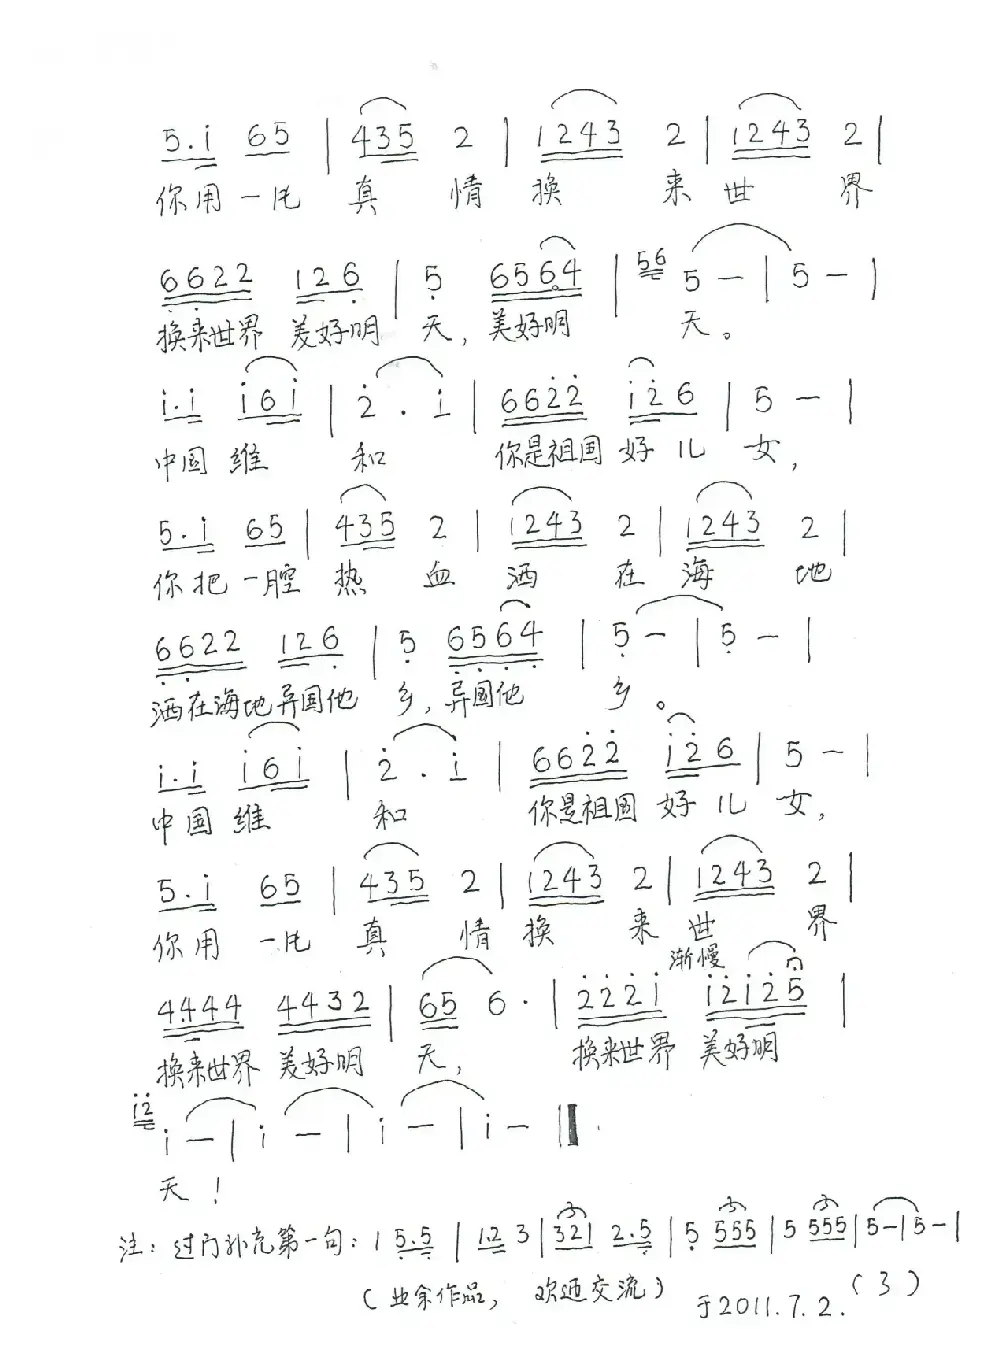 5.i 65 | 435 2 | 1243 2 | 1243 2 |
你用一片 真 情 换 来 世 界
6622 126 | 5 6564 | 56 5 — | 5 — |
换来世界 美好明 天, 美好明 天。
i.i i6i | 2 . i | 6622 i26 | 5 — |
中国维 和 你是祖国 好儿 女,
5.i 65 | 435 2 | 1243 2 | 1243 2 |
你把一腔 热 血 洒 在 海 地
6622 126 | 5 6564 | 5 — | 5 — |
洒在海地异国他 乡, 异国他 乡。
i.i i6i | 2 . i | 6622 i26 | 5 — |
中国维 和 你是祖国 好儿 女,
5.i 65 | 435 2 | 1243 2 | 1243 2 |
你用 一片 真 情 换 来 世 界
渐慢
4444 4432 | 65 6· | 222i i2i25 |
换来世界 美好明 天, 换来世界 美好明
i2 i — | i — | i — | i — ‖
天!
注: 过门补充第一句: 1 5.5 | 1.2 3 | 321 2.5 | 5 555 | 5 555 | 5 — | 5 — |
(业余作品, 欢迎交流) 于2011.7.2. (3)